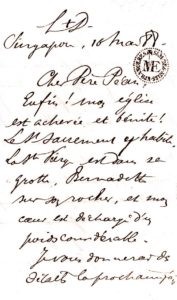 L + D
Singapore, 18 Mars 88
Cher Père Péan,
Enfin! mon église
est achevée et bénite!
Le St Sacrement y habite.
La Ste Vierge est dans sa
grotte, Bernadette
sur son rocher, et mon
cœur est déchargé d'un
poids considérable.
Je vous donnerai des
détails la prochaine fois